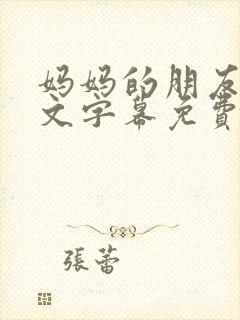 妈妈的朋友
文字幕免費
張蕾